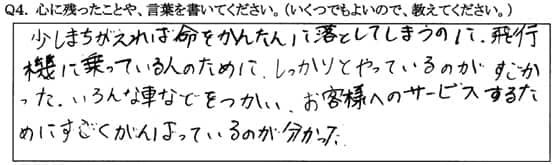 Q4. 心に残ったことや、言葉を書いてください。（いくつでもよいので、教えてください。）
少しまちがえれば命をかんたんに落としてしまうのに、飛行
機に乗っている人のために、しっかりとやっているのがすごか
った。いろんな車などをつかい、お客様へのサービスするた
めにすごくがんばっているのが分かった。